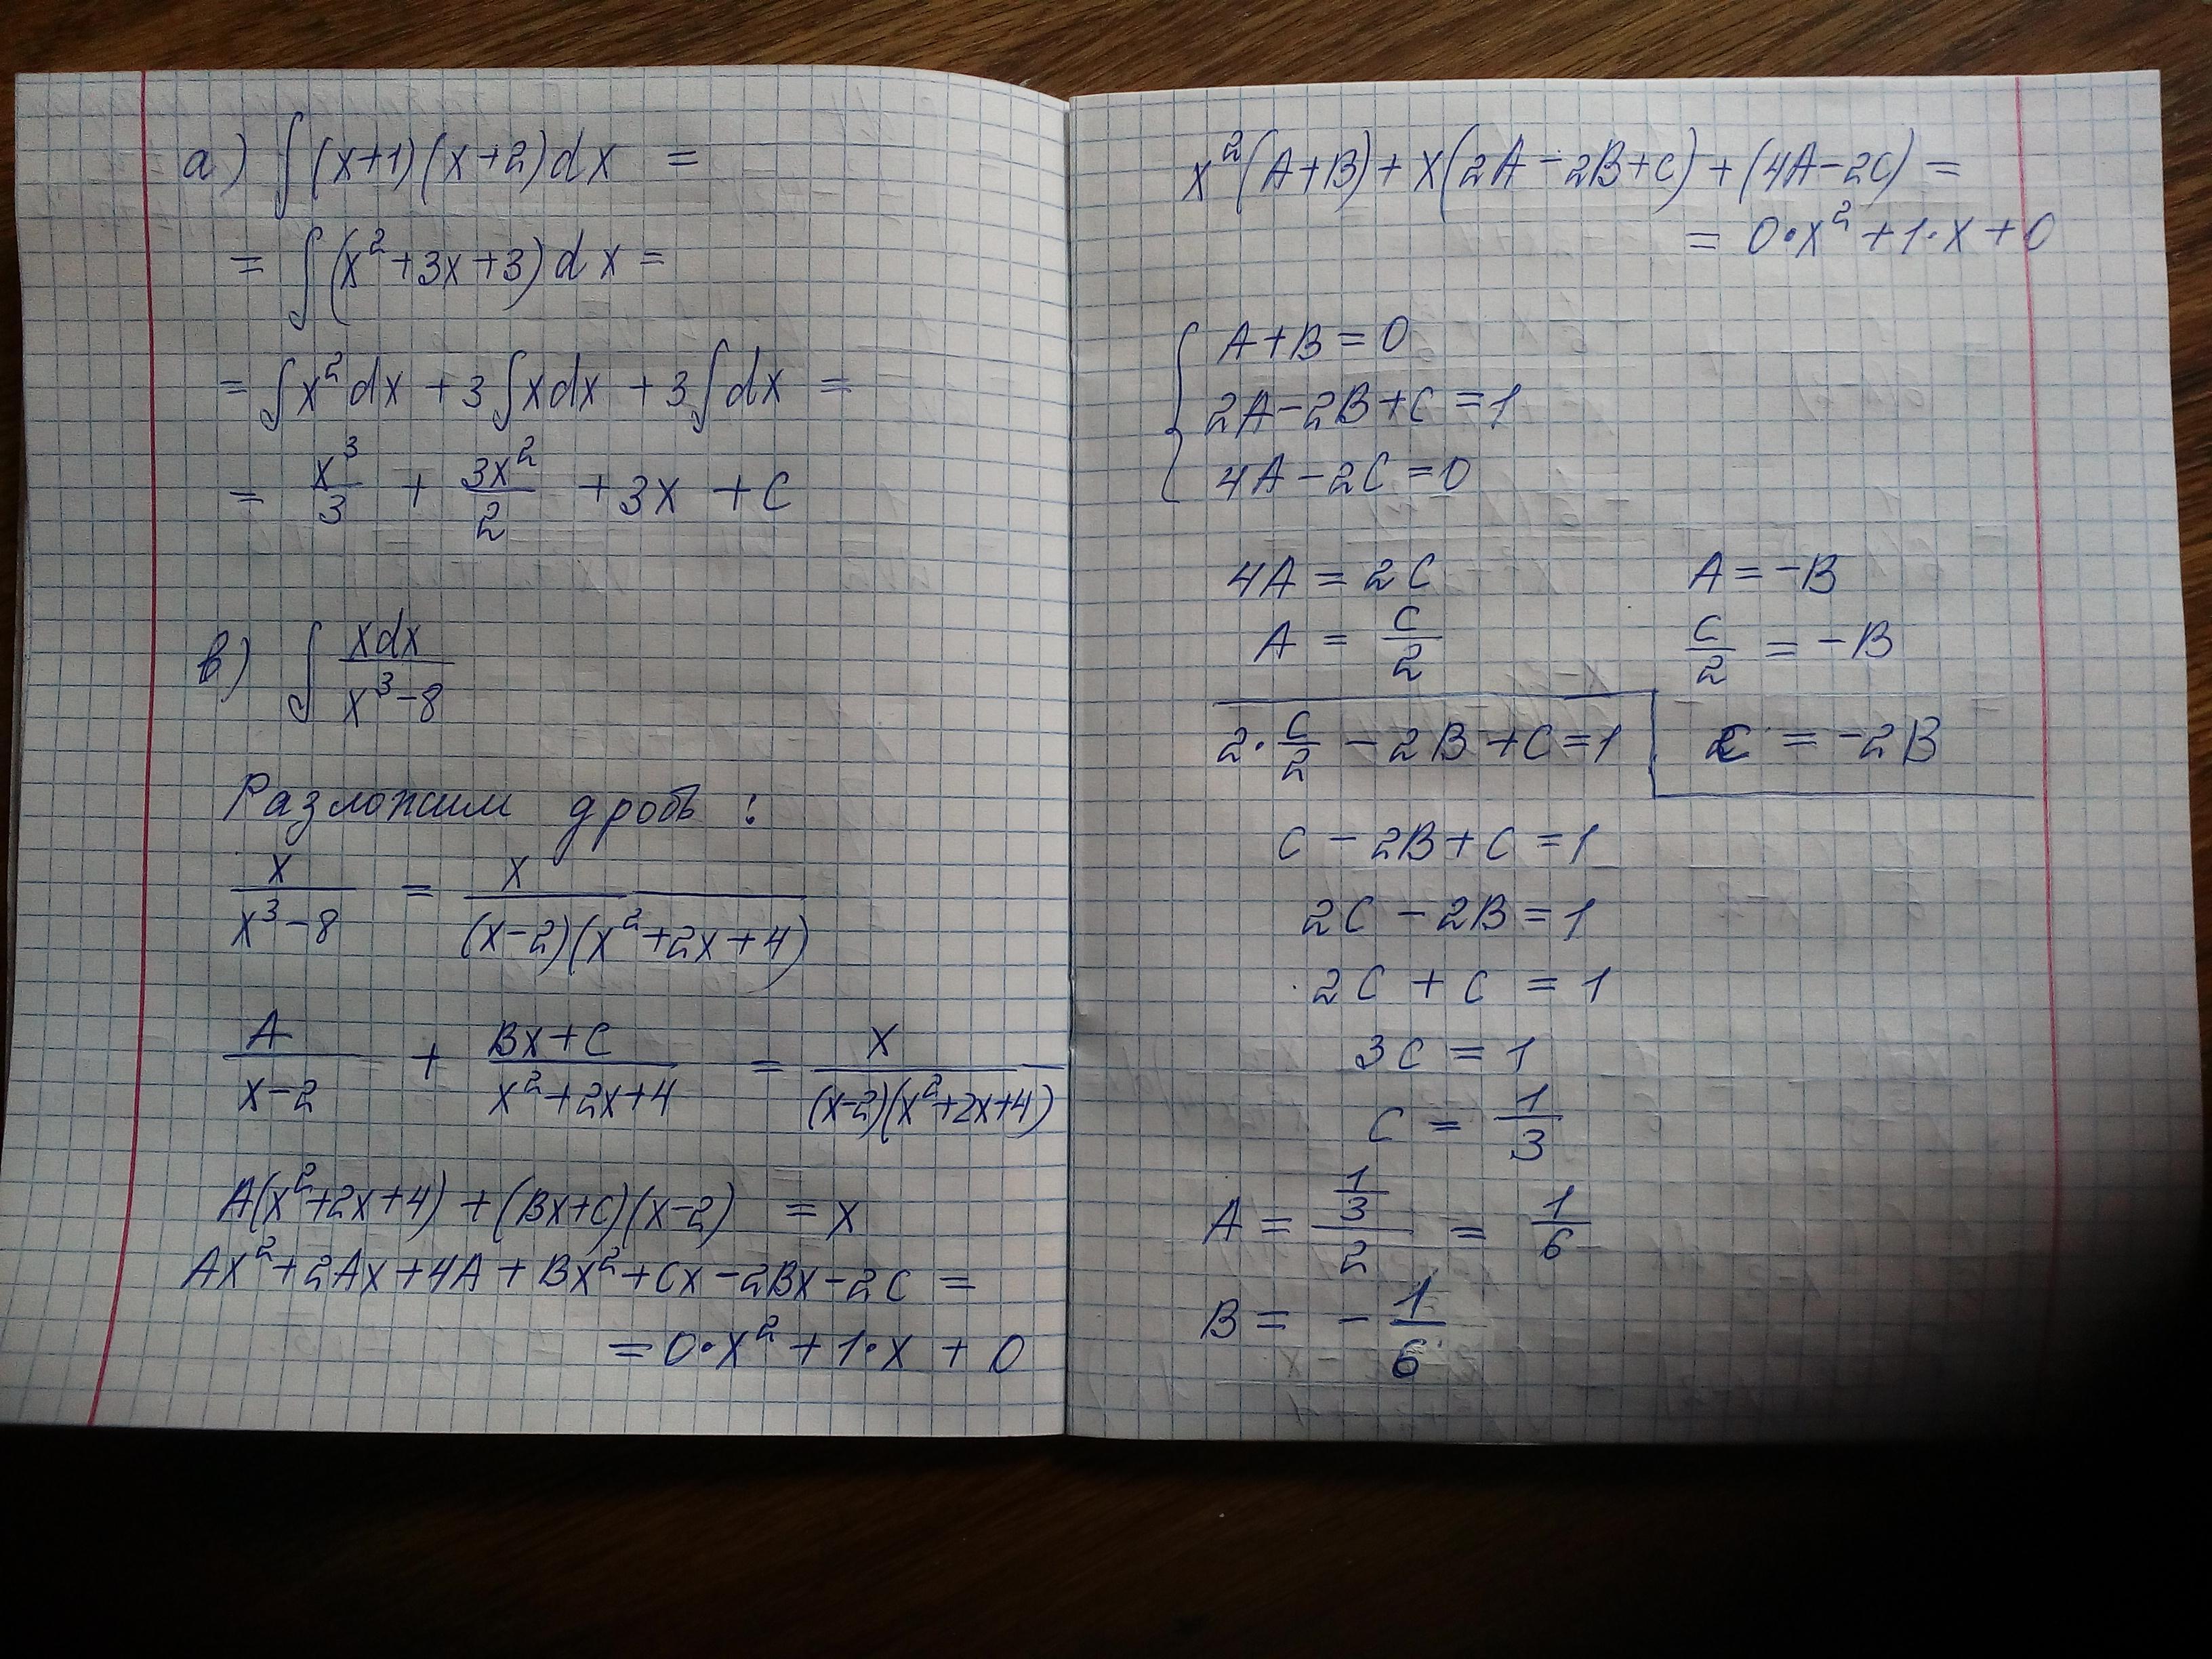 а) ∫(x+1)(x+2)dx =
= ∫(x²+3x+3)dx =
= ∫x²dx + 3∫xdx + 3∫dx =
= x³/3 + 3x²/2 + 3x + C
в) ∫ xdx/(x³-8)
Разложим дробь:
x/(x³-8) = x/((x-2)(x²+2x+4))
A/(x-2) + (Bx+C)/(x²+2x+4) = x/((x-2)(x²+2x+4))
A(x²+2x+4) + (Bx+C)(x-2) = x
Ax²+2Ax+4A+Bx²+Cx-2Bx-2C =
= 0·x² + 1·x + 0
x²(A+B)+x(2A-2B+C)+(4A-2C) =
= 0·x²+1·x+0
{ A+B=0
2A-2B+C=1
4A-2C=0
4A = 2C
A = C/2
A = -B
C/2 = -B
C = -2B
2·C/2 - 2B+C=1
C - 2B + C = 1
2C - 2B = 1
2C + C = 1
3C = 1
C = 1/3
A = (1/3)/2 = 1/6
B = - 1/6